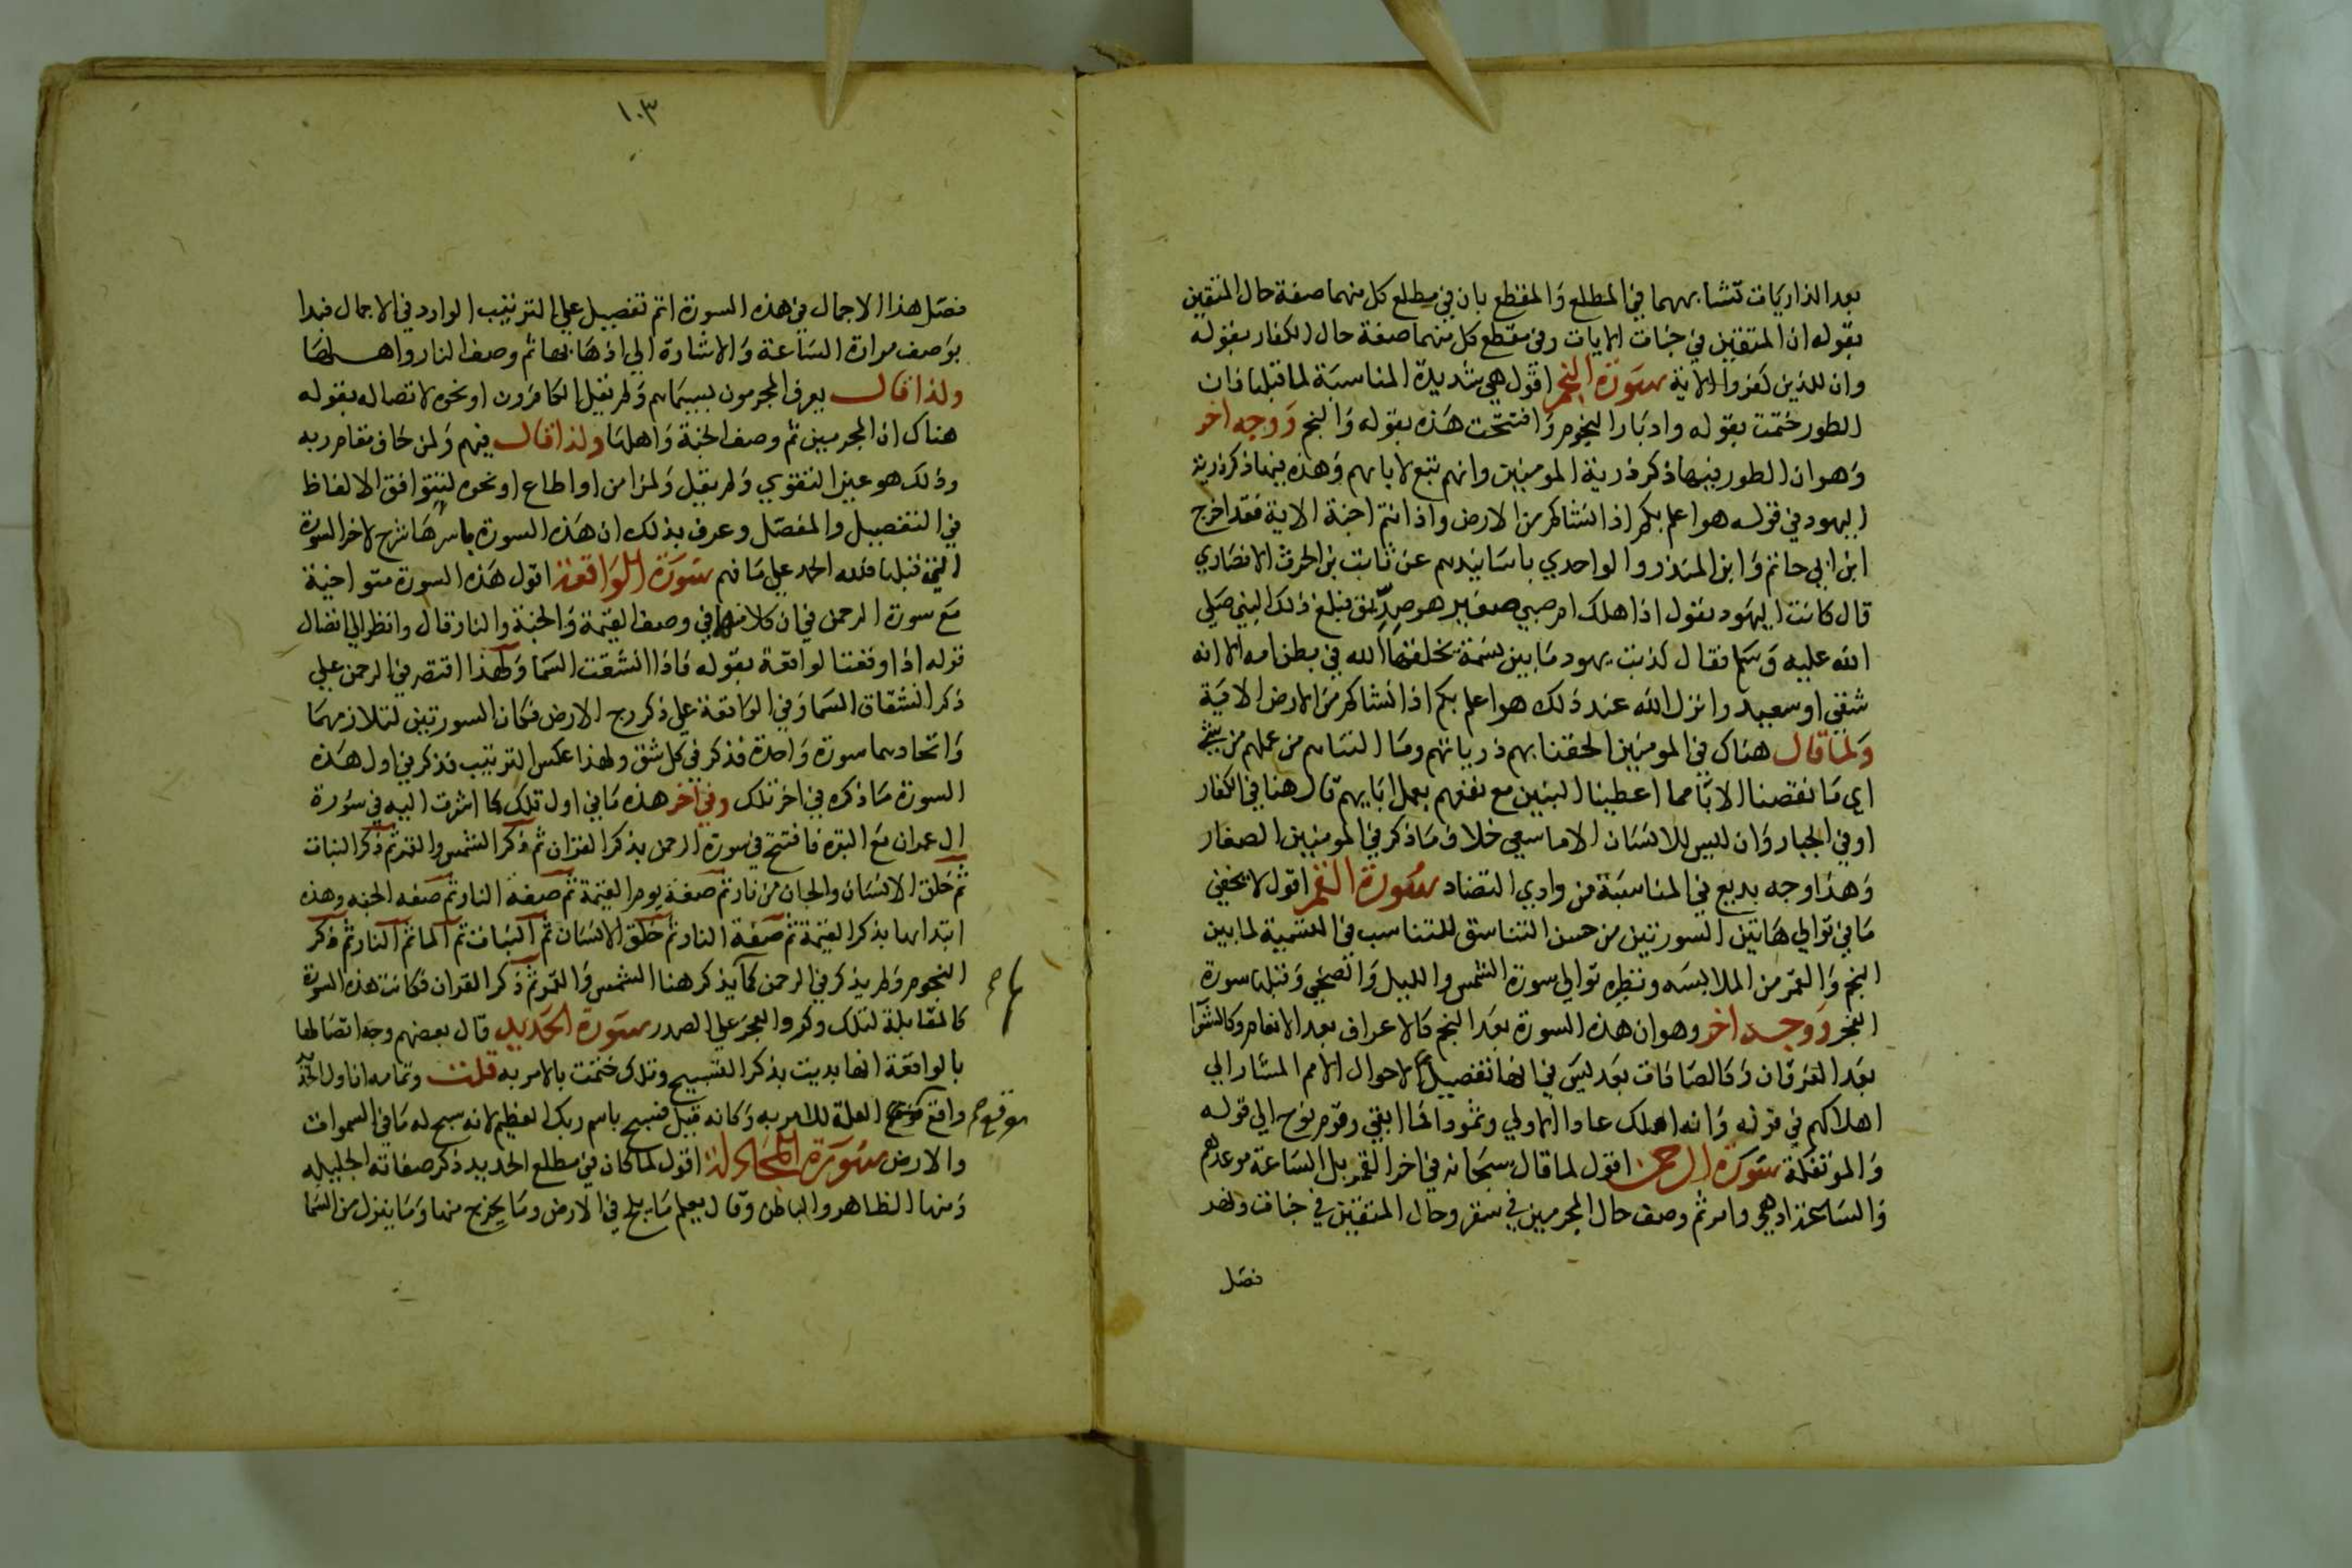 بعد الذاريات تشابههما في المطلع والمقطع بان في مطلع كل منهما صفة حال المتقين
بقوله ان المتقين في جنات الايات وفي مقطع كل منهما صفة حال الكفار بقوله
وان للذين كفروا الاية سورة النجم اقول هي شديدة المناسبة لما قبلها فان
الطور ختمت بقوله وادبار النجوم وافتتحت هذه بقوله والنجم ووجه اخر
وهو ان الطور فيها ذكر ذرية المومنين وانهم تبع لابايهم وهذه فيها ذكر ذرية
اليهود في قوله هو اعلم بكم اذ انشاكم من الارض واذ انتم اجنة الاية فقد اخرج
ابن ابي حاتم وابن المنذر والواحدي باسانيدهم عن ثابت بن الحرث الانصاري
قال كانت اليهود تقول اذا هلك لهم صبي صغير هو صديق فبلغ ذلك النبي صلي
الله عليه وسلم فقال كذبت يهود ما بين نسمة يخلقها الله في بطن امه الا انه
شقي او سعيد وانزل الله عند ذلك هو اعلم بكم اذ انشاكم من الارض الاية
ولما قال هناك في المومنين الحقنا بهم ذرياتهم وما التناهم من عملهم من شي
اي ما نقصنا الابا مما اعطينا البنين مع نفعهم بعمل ابايهم قال هنا في الكفار
او في الجبار وان ليس للانسان الا ما سعي خلاف ما ذكر في المومنين الصغار
وهذا وجه بديع في المناسبة من وادي التضاد سورة القمر اقول لا يخفي
ما في توالي هاتين السورتين من حسن التناسق للتناسب في التسمية لما بين
النجم والقمر من الملابسه ونظره توالي سورة الشمس والليل والضحي وقبلها سورة
الفجر ووجه اخر وهو ان هذه السورة بعد النجم كالاعراف بعد الانعام وكالشعرا
بعد الفرقان وكالصافات بعد ليس في انها تفصيل لاحوال الامم المشار الي
اهلاكهم في قوله وانه اهلك عادا الاولي وثمود فما ابقي وقوم نوح الي قوله
والموتفكة سورة الرحمن اقول لما قال سبحانه في اخر القمر بل الساعة موعدهم
والساعة ادهي وامر ثم وصف حال المجرمين في سقر وحال المتقين في جنات ونهر
فصل
١٠٣
فصل هذا الاجمال في هذه السورة اتم تفصيل علي الترتيب الوارد في الاجمال فبدا
بوصف مرارة الساعة والاشارة الي ادهابها ثم وصف النار واهلها
ولذا قال يعرف المجرمون بسيماهم ولم يقل الكافرون او نحوه لاتصاله بقوله
هناك ان المجرمين ثم وصف الجنة واهلها ولذا قال فيهم ولمن خاف مقام ربه
وذلك هو عين التقوي ولم يقل ولمن امن او اطاع او نحوه لتتوافق الالفاظ
في التفصيل والمفصل وعرف بذلك ان هذه السورة باسرها شرح لاخر السورة
التي قبلها فلله الحمد علي ما فهم سورة الواقعة اقول هذه السورة متواخية
مع سورة الرحمن في ان كلا منهما في وصف القيمة والجنة والنار قال وانظر الي اتصال
قوله اذا وقعت الواقعة بقوله فاذا انشقت السما ولهذا اقتصر في الرحمن علي
ذكر انشقاق السما وفي الواقعة علي ذكر رج الارض فكان السورتين لتلازمهما
واتحادهما سورة واحدة فذكر في كل شق ولهذا عكس الترتيب فذكر في اول هذه
السورة ما ذكره في اخر تلك وفي اخر هذه ما في اول تلك كما اشرت اليه في سورة
ال عمران مع البقره فافتتح في سورة الرحمن بذكر القران ثم ذكر الشمس والقمر ثم ذكر النبات
ثم خلق الانسان والجان من نار ثم صفة يوم القيمة ثم صفة النار ثم صفه الجنه وهذه
ابتداها بذكر القيمة ثم صفة النار ثم خلق الانسان ثم النبات ثم الما ثم النار ثم ذكر
النجوم ولم يذكر في الرحمن كما لم يذكر هنا الشمس والقمر ثم ذكر القران فكانت هذه السورة
كالمقابلة لتلك وكرد العجز علي الصدر سورة الحديد قال بعضهم وجه اتصالها
بالواقعة انها بديت بذكر التسبيح وتلك ختمت بالامر به قلت وتمامه ان اول الحديد
واقع موقع العلة للامر به وكانه قيل فسبح باسم ربك العظيم لانه سبح له ما في السموات
والارض سورة المجادلة اقول لما كان في مطلع الحديد ذكر صفاته الجليله
ومنها الظاهر والباطن وقال يعلم ما يلج في الارض وما يخرج منها وما ينزل من السما